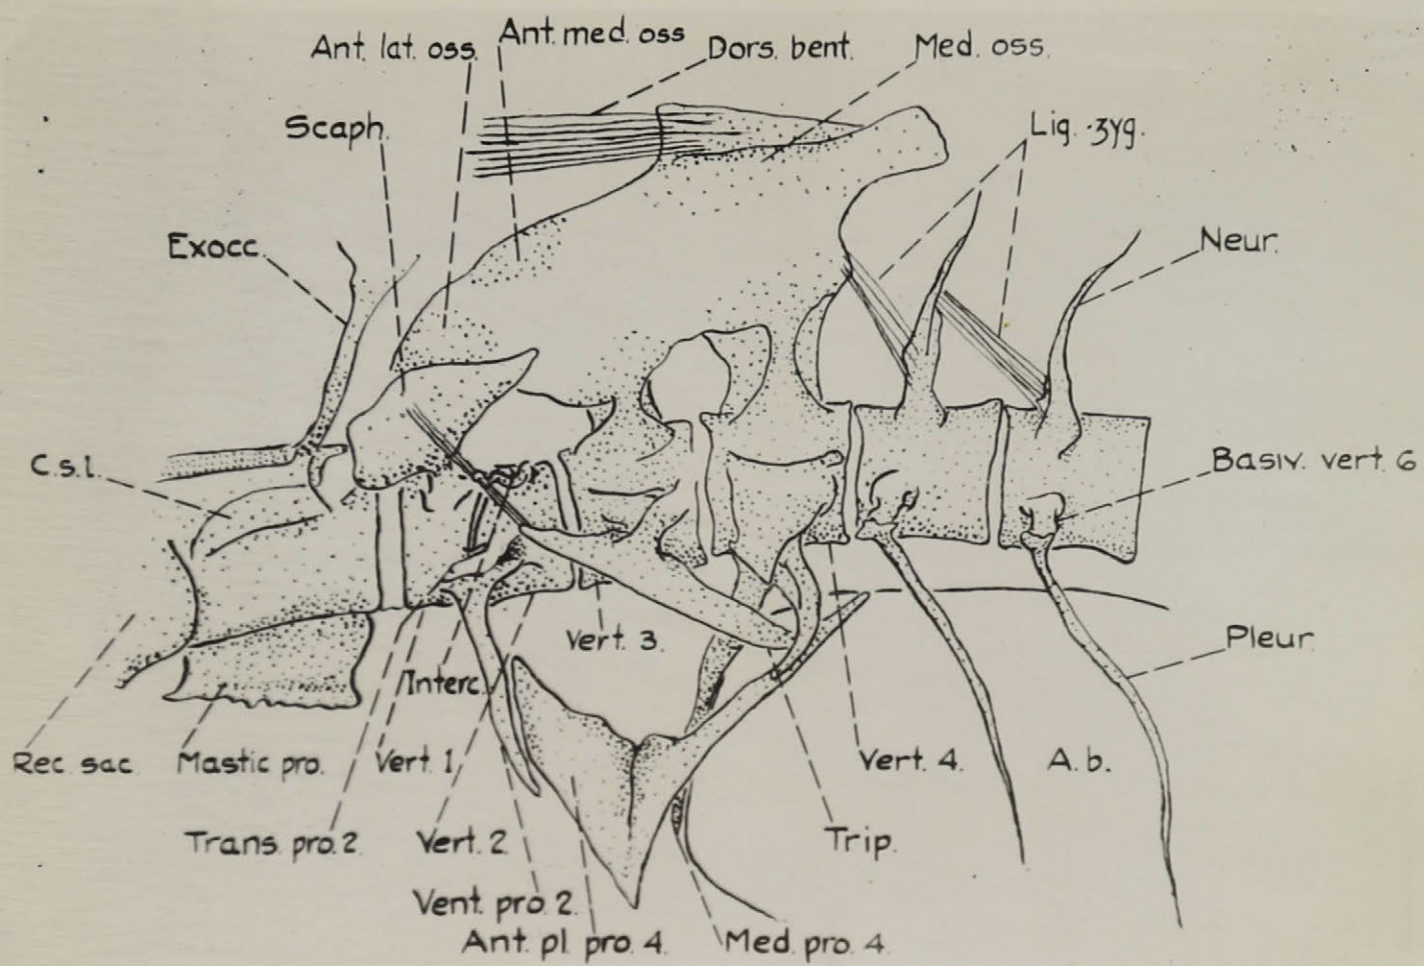 Ant. lat. oss.
Ant. med. oss
Dors. bent.
Med. oss.
Scaph.
Lig. zyg.
Exocc.
Neur.
C.s.l.
Basiv. vert. 6
Vert. 3.
Pleur.
Interc.
Rec. sac.
Mastic pro.
Vert. 1
Vert. 4.
A.b.
Trans. pro. 2.
Vert. 2
Trip.
Vent. pro. 2.
Ant. pl. pro. 4.
Med. pro. 4.